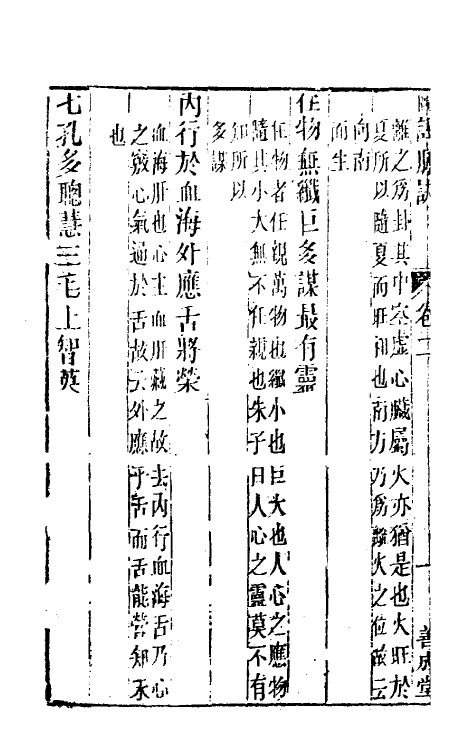 圖註脈訣 卷二 一 善成堂
離之爲卦其中空虛心臟屬火亦猶是也火旺於
夏所以隨夏而旺和也南方乃爲離火之位茲云
向南
而生
任物無纖巨多謀最有靈
任物者任視萬物也纖小也巨大也人心之應物
隨其小大無不任親也朱子曰人心之靈莫不有
知所以
多謀
內行於血海外應舌將榮
血海肝也心主血肝藏之故去內行血海舌乃心
之竅心氣通於舌故云外應乎舌而舌能營知禾
也
七孔多聰慧三毛上智英